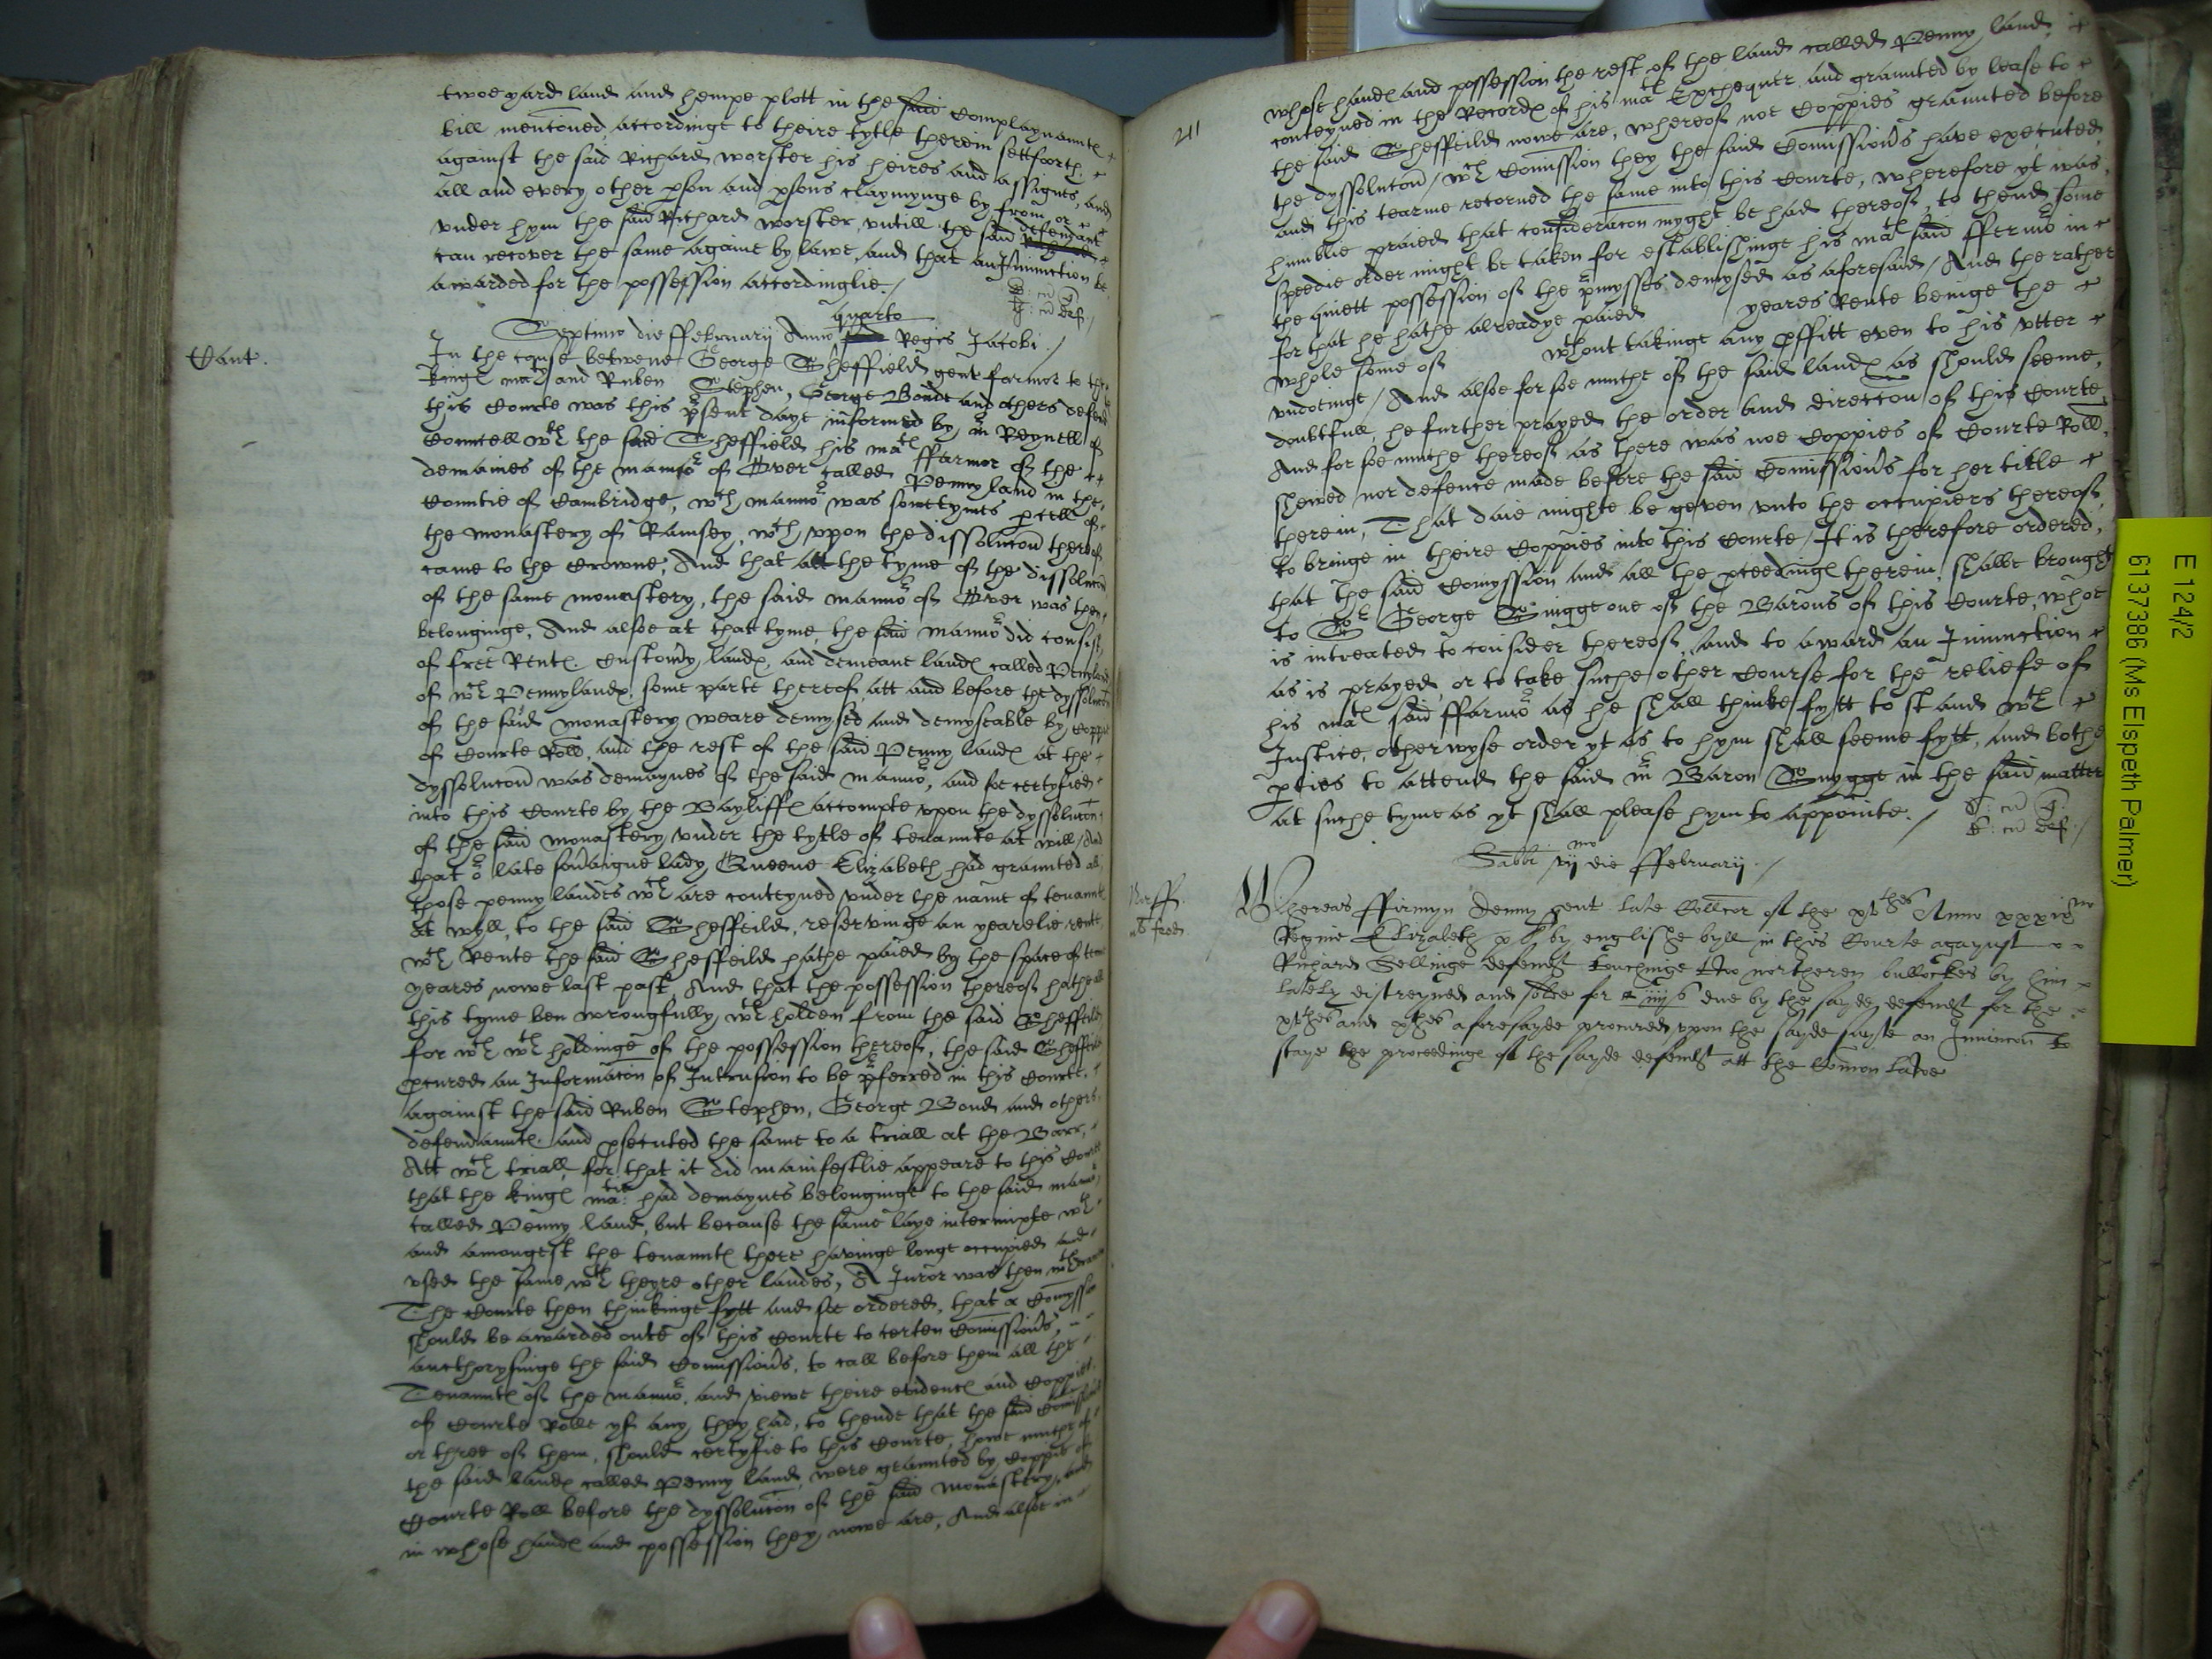 twoe yard land and hempe plott in the said Complaynantes
bill mentioned accordinge to theire tytle therein settfoorth
against the said Richard Worster his heires and assignes, and
all and every other pson and psons claymynge by from or
vnder hym the said Richard Worster, vntill the said defendant
can recover the same againe by lawe, and that an Iniunction be
awarded for the possession accordinglie /
quarto
Septimo die ffebruarij Anno Regis Jacobi /
Cant.
In the cause betwene George Sheffield gent farmor to the
kinges maty and Ruben Stephen, George Bonde and others defend
this Courte was this psent daye informed by mr Reynell of
Councell wth the said Sheffield his mates ffarmor of the
demaines of the mannor of Over called Penny land in the
Countie of Cambridge, wch mannor was sometymes pcell of
the monastery of Ramsey, wch vpon the dissolucon thereof
came to the Crowne, And that att the tyme of the dissolucon
of the same monastery, the said mannor of Over was then
belonginge, And alsoe at that tyme, the said mannor did consist
of free Rentes. Customary landes, and demeane landes called Pennyland
of wch Pennylandes, some parte thereof att and before the dyssolucon
of the said monastery weare demysed and demyseable by coppie
of Courte Roll, and the rest of the said Penny landes at the
dyssolucon was demaynes of the said mannor, and soe certyfied
into this Courte by the Bayliffes accompte vpon the dyssolucon
of the said monastery vnder the tytle of tenannte at will / And
that or late soveraigne lady Queene Elizabeth had graunted all
those penny landes wch are conteyned vnder the name of tenannte
at wyll, to the said Sheffeild, reservinge an yearelie rente,
wch Rente the said Sheffeild hathe paied by the space of
yeares nowe last past, And that the possession thereof hathe all
this tyme ben wrongfully wthholden from the said Sheffeild
for wch wthholdinge of the possession thereof, the said Sheffeild
pcured an Informacon of Intrusion to be pferred in this Courte
against the said Ruben Stephen, George Bond and others
defendanntes. and psecuted the same to a triall at the Barr,
Att wch triall, for that it did manifestlie appeare to this Courte
that the kinges matie had demaynes belonginge to the said mannor
called Penny land, but because the same laye intermixte wth
and amongest the tenanntes there havinge longe occupied and
vsed the same wth theyre other landes, A Iuror was then wthdrawn
The Courte then thinkinge fytt and soe ordered, that a Comyssion
should be awarded oute of this Courte to certen Comissioners,
aucthorysinge the said Comissioners, to call before them all the
Tenanntes of the mannor, and viewe theire evidences and Coppies
of Courte Rolle yf any they had, to thende that the said Comissioners
or three of them, should certyfie to this Courte, howe muche of
the said landes called Penny land, were graunted by Coppie of
Courte Roll before the dyssolucon of the said monastery, and
in whose handes and possession they nowe are, And alsoe in
241
whose handes and possession the rest of the land called Penny land
conteyned in the Recordes of his mates Exchequer and graunted by lease to
the said Sheffeild nowe are, whereof noe Coppies graunted before
the dyssolucon / wch Comission they the said Comissioners have executed
and this tearme retorned the same into this Courte, wherefore yt was
humblie praied that consideracon myght be had thereof, to thend some
speedie order might be taken for establishinge his mates said ffermor in
the quiett possession of the pmysses demysed as aforesaid / And the rather
for that he hathe alreadye paied yeares Rente beinge the
whole some of wthout takinge any pffitt even to his vtter
vndoeinge / And alsoe for soe muche of the said landes as should seeme
doubtfull, he further prayed the order and direccon of this Courte,
And for soe muche thereof as there was noe Coppies of Courte Roll
shewed nor defence made before the said Comissioners for her title
therein, That daie mighte be geven vnto the occupiers thereof,
to bringe in theire Coppies into this Courte / It is therefore ordered,
that the said Comyssion and all the pceedinges therein, shalbe brought
to Sr George Snigge one of the Barons of this Courte, whoe
is intreated to consider thereof, and to award an Iniunction
as is prayed, or to take suche other Course for the reliefe of
his mates said ffarmor as he shall thinke fytt to stand wth
Iustice, otherwyse order yt as to hym shall seeme fytt, and bothe
pties to attend the said mr Baron Snygge in the said matter
at suche tyme as yt shall please hym to appointe. /
Sabbi vijmo die ffebruarij /
Norff.
Whereas ffirmyn Denny gent late Collcor of the xvthes Anno xxxixno
Regine Elizabeth by englishe byll in this Courte agaynst
Richard Sellinge defendt touchinge two northeren bullockes by him
lately distreyned and solde for iiijs due by the sayde defendt for the
xvthes and xthes aforesayde procured vpon the sayde suyte an Iniuncon to
staye the proceedinges of the sayde defendt att the Comon Lawe
E 124/2
6137386 (Ms Elspeth Palmer)